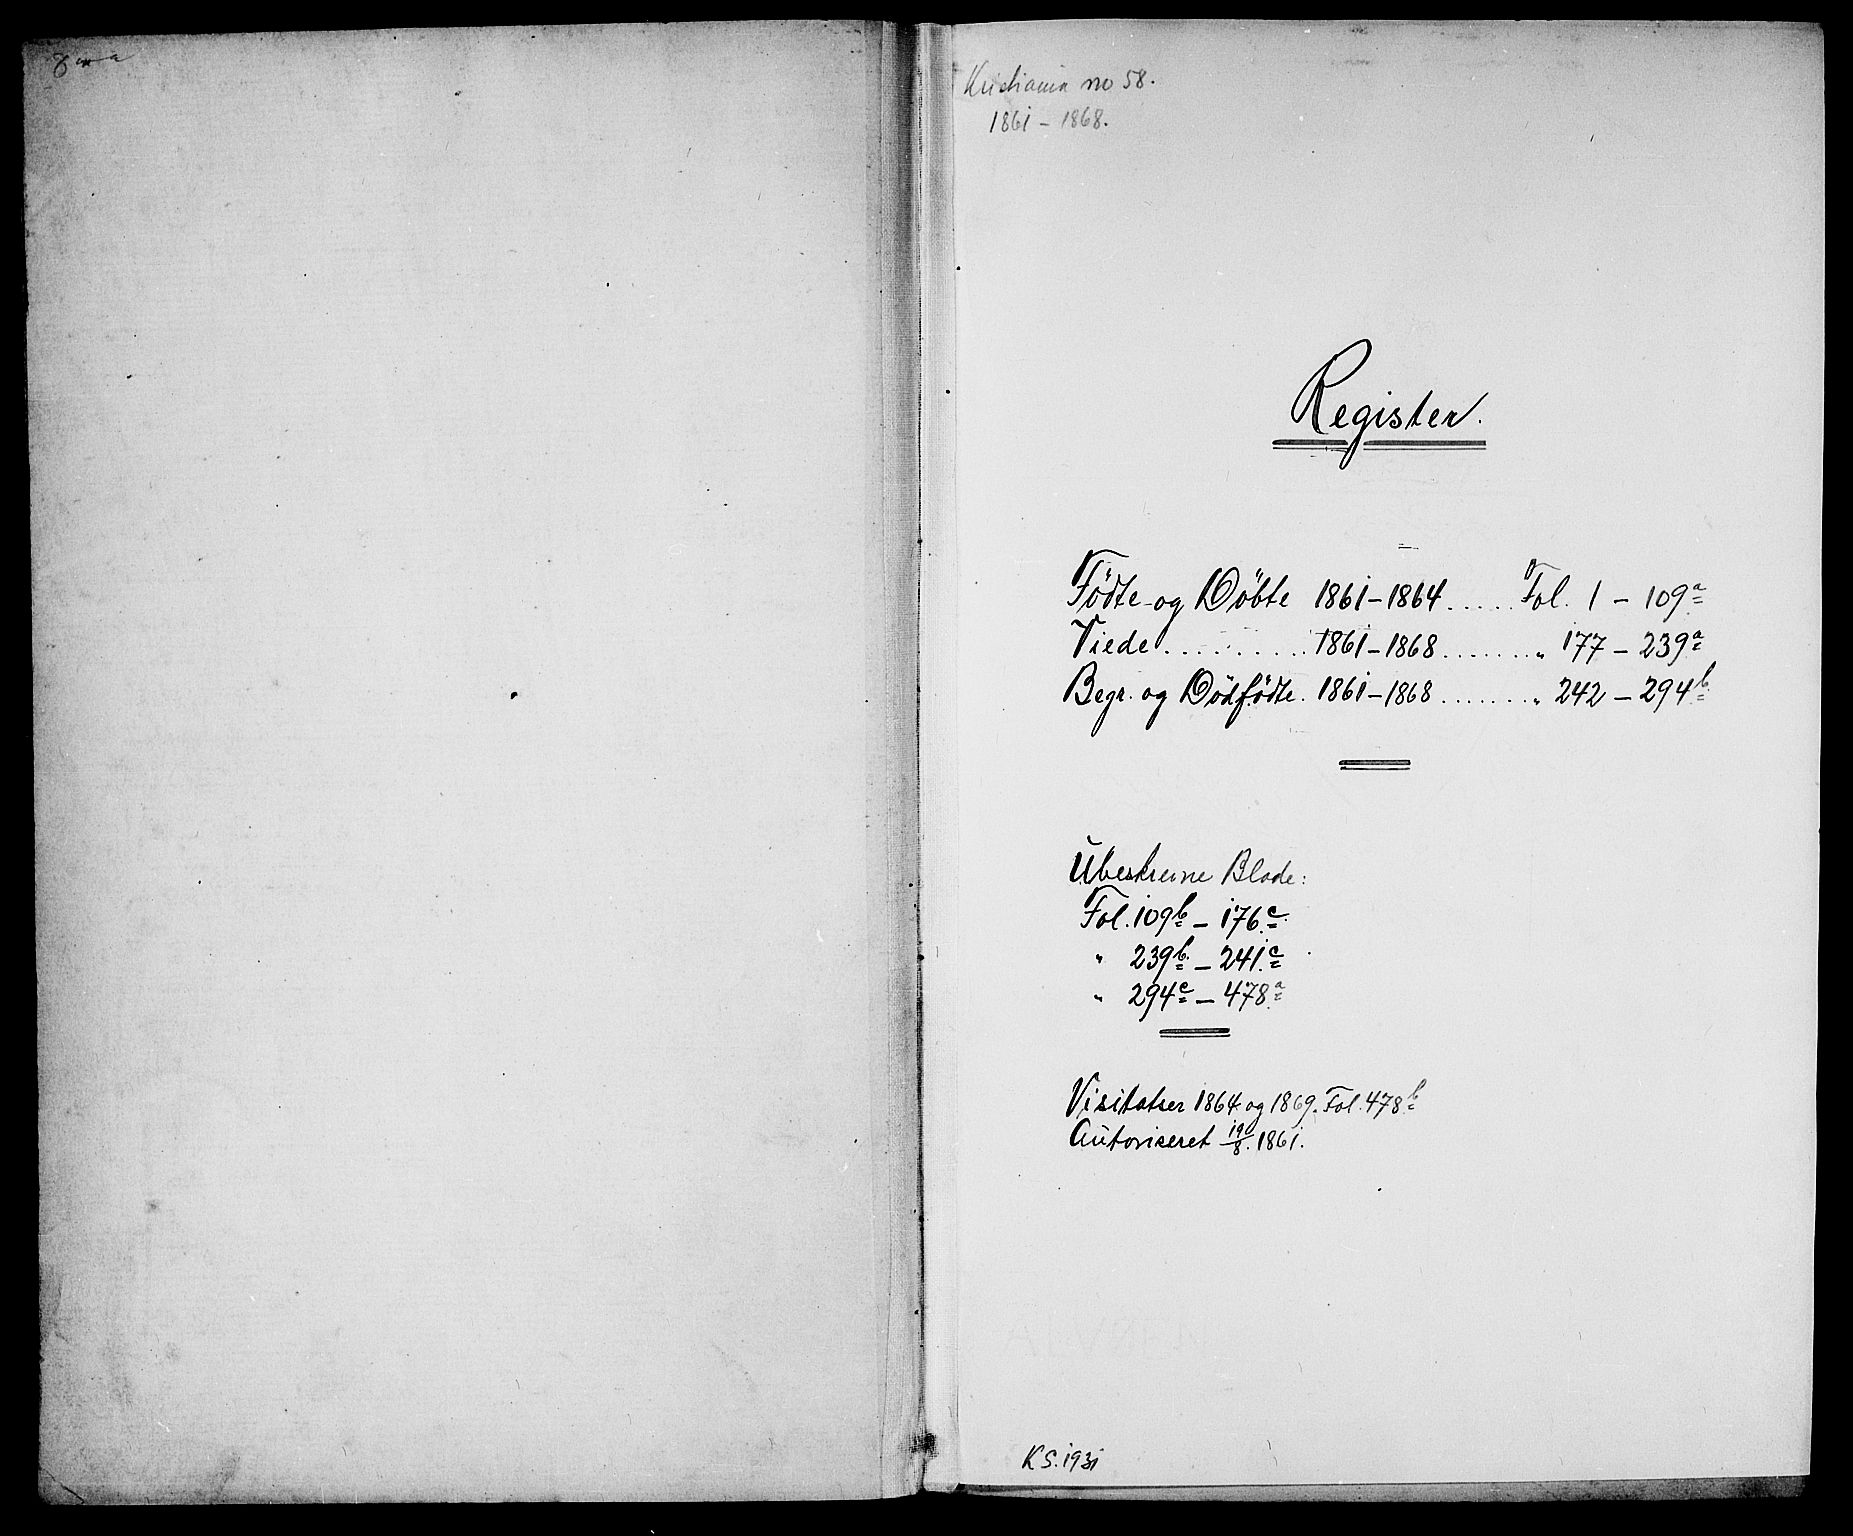 Kristiania no 58.
1861 – 1868.
Register.
Födte og Döbte 1861–1864 ..... Fol. 1 – 109a
Viede .......... 1861–1868 ....... " 177 – 239a
Begr. og Dödfödte. 1861–1868 ....... " 242 – 294b
Ubeskrevne Blade:
Fol. 109b – 176c.
" 239b – 241c.
" 294c – 478a
Visitatser 1864 og 1869. Fol. 478b
Autoriseret 19/8. 1861.
K S. 1931